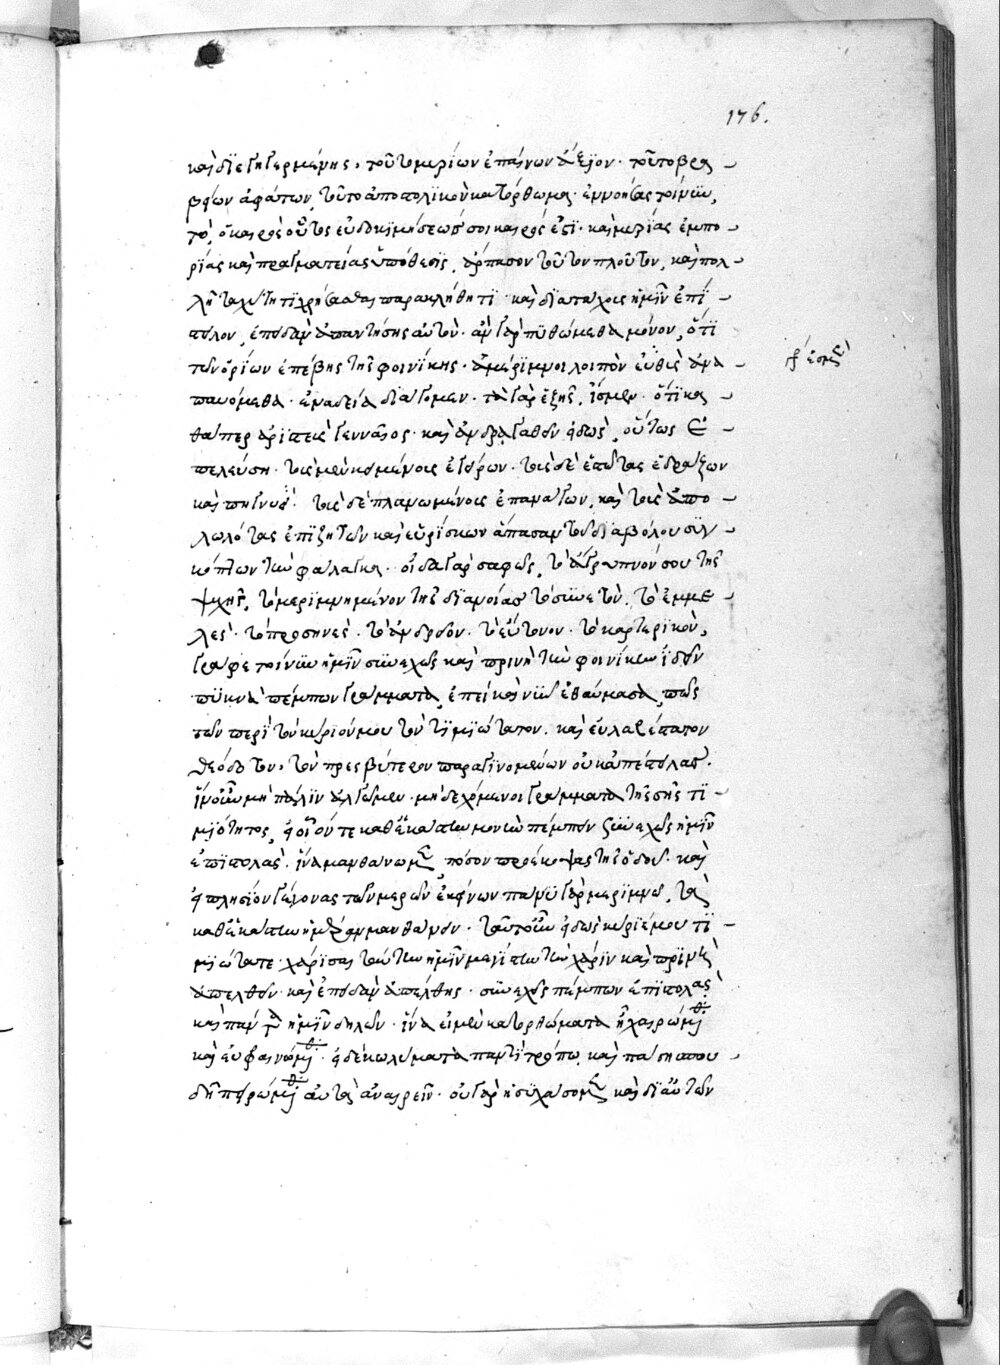 176.
καὶ διεγηγερμένης, τοῦτο μυρίων ἐπαίνων ἄξιον· τοῦτο βρα
βείων ἀφάτων, τοῦτο ἀποστολικὸν κατόρθωμα· ἐννοήσας τοίνυν,
τὸ, ὁ καιρὸς οὗτος εὐδοκιμήσεώς σοι καιρός ἐστι· καὶ μυρίας ἐμπο
ρίας καὶ πραγματείας ὑπόθεσις, ἅρπασον τοῦτον πλοῦτον, καὶ πολ
λῇ ταχύτητι χρήσασθαι παρακλήθητι· καὶ διὰ τάχους ἡμῖν ἐπί
στειλον, ἐπειδὰν ἀπαντήσῃς αὐτοῦ· ἂν γὰρ πυθώμεθα μόνον, ὅτι
τῶν ὁρίων ἐπέβης τῆς φοινίκης· ἀμέριμνοι λοιπὸν εὐθὺς ἀνα
παυόμεθα· ἐν ἀδείᾳ διάγομεν· τὰ γὰρ ἑξῆς, ἴσμεν· ὅτι κα
θάπερ ἀριστεὺς γενναῖος· καὶ ἄνδρα γαθὸν εἰδὼς, οὕτως ἐ
πελεύσῃ· τοὺς μὲν κειμένους ἐγείρων· τοὺς δὲ ἑστῶτας ἑδράζων
καὶ πηγνύς· τοὺς δὲ πλανωμένους ἐπανάγων, καὶ τοὺς ἀπο
λωλότας ἐπιζητῶν καὶ εὑρίσκων ἅπασαν τοῦ διαβόλου συγ
κόπτων τὴν φάλαγγα· οἶδα γὰρ σαφῶς, τὸ ἄγρυπνόν σου τῆς
ψυχῆς, τὸ μεριμνημένον τῆς διανοίας τὸ συνετὸν. τὸ ἐμμε
λές· τὸ προσηνές· τὸ ἀνδρεῖον· τὸ εὔτονον· τὸ καρτερικὸν,
γράφε τοίνυν ἡμῖν συνεχῶς καὶ πρινὴ τὴν φοινίκην ἰδεῖν
πυκνὰ πέμπων γράμματα, ἐπεὶ καὶ νῦν ἐθαύμασα, πῶς
τῶν περὶ τὸν κύριόν μου τὸν τιμιώτατον. καὶ εὐλαβέστατον
θεόδοτον, τὸν πρεσβύτερον παραγινομένων οὐκ ἀπέστειλας·
ἵν' οὖν μὴ πάλιν ἀλγῶμεν· μὴ δεχόμενοι γράμματα τῆς σῆς τι
μιότητος, εἰ οἷόν τε καθ' ἑκάστην μονὴν πέμπειν συνεχῶς ἡμῖν
ἐπιστολάς· ἵνα μανθάνωμεν πόσον προέκοψας τῆς ὁδοῦ· καὶ
εἰ πλησίον γέγονας τῶν μερῶν ἐκείνων πάνυ γὰρ μεριμνῶ, τὰ
καθ' ἑκάστην ἡμέραν μανθάνειν· ταῦτ' οὖν εἰδὼς κύριέ μου τι
μιώτατε· χάρισαι ταύτην ἡμῖν μεγίστην τὴν χάριν καὶ πρὶν εἰς
ἀπελθεῖν· καὶ ἐπειδὰν ἀπέλθῃς· συνεχῶς πέμπων ἐπιστολὰς
καὶ πάντα ἡμῖν δηλῶν· ἵνα εἰ μὲν κατορθώματα ᾖ χαιρώμεθα
καὶ εὐφραινώμεθα· εἰ δὲ κωλύματα παντὶ τρόπῳ καὶ πάσῃ σπου
δῇ πειρώμεθα αὐτὰ ἀναιρεῖν· οὐ γὰρ ἡσυχάσομεν καὶ δι' αὐτῶν